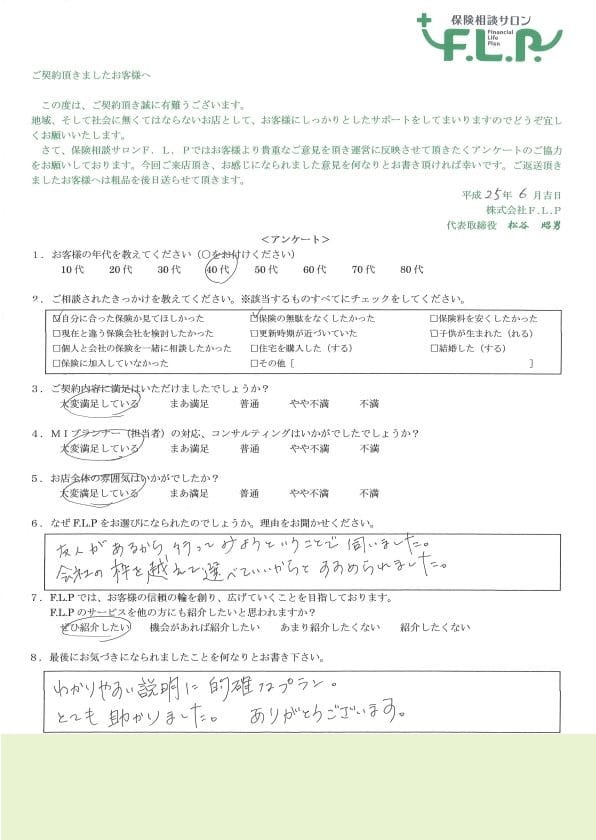 保険相談サロン
F.L.P.
Financial
Life
Plan
ご契約頂きましたお客様へ
この度は、ご契約頂き誠に有難うございます。
地域、そして社会に無くてはならないお店として、お客様にしっかりとしたサポートをしてまいりますのでどうぞ宜しくお願いいたします。
さて、保険相談サロンF．L．Pではお客様より貴重なご意見を頂き運営に反映させて頂きたくアンケートのご協力をお願いしております。今回ご来店頂き、お感じになられました意見を何なりとお書き頂ければ幸いです。ご返送頂きましたお客様へは粗品を後日送らせて頂きます。
平成25年6月吉日
株式会社F.L.P
代表取締役 松谷 昭男
＜アンケート＞
1．お客様の年代を教えてください（○をお付けください）
10代 20代 30代 40代 50代 60代 70代 80代
2．ご相談されたきっかけを教えてください。※該当するものすべてにチェックをしてください。
☑自分に合った保険か見てほしかった ☑保険の無駄をなくしたかった □保険料を安くしたかった
□現在と違う保険会社を検討したかった □更新時期が近づいていた □子供が生まれた（れる）
□個人と会社の保険を一緒に相談したかった □住宅を購入した（する） □結婚した（する）
□保険に加入していなかった □その他［ ］
3．ご契約内容に満足はいただけましたでしょうか？
大変満足している まあ満足 普通 やや不満 不満
4．MIプランナー（担当者）の対応、コンサルティングはいかがでしたでしょうか？
大変満足している まあ満足 普通 やや不満 不満
5．お店全体の雰囲気はいかがでしたか？
大変満足している まあ満足 普通 やや不満 不満
6．なぜF.L.Pをお選びになられたのでしょうか。理由をお聞かせください。
友人があるから行ってみようということで伺いました。
会社の枠を越えて選べていいからとすすめられました。
7．F.L.Pでは、お客様の信頼の輪を創り、広げていくことを目指しております。
F.L.Pのサービスを他の方にも紹介したいと思われますか？
ぜひ紹介したい 機会があれば紹介したい あまり紹介したくない 紹介したくない
8．最後にお気づきになられましたことを何なりとお書き下さい。
わかりやすい説明に的確なプラン。
とても助かりました。 ありがとうございます。